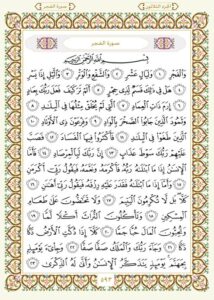 سورة الفجر
الجزء الثلاثون
سورة الفجر
بِسْمِ اللَّهِ الرَّحْمَٰنِ الرَّحِيمِ
وَالْفَجْرِ ١ وَلَيَالٍ عَشْرٍ ٢ وَالشَّفْعِ وَالْوَتْرِ ٣ وَاللَّيْلِ إِذَا يَسْرِ
٤ هَلْ فِي ذَٰلِكَ قَسَمٌ لِّذِي حِجْرٍ ٥ أَلَمْ تَرَ كَيْفَ فَعَلَ رَبُّكَ بِعَادٍ ٦
إِرَمَ ذَاتِ الْعِمَادِ ٧ الَّتِي لَمْ يُخْلَقْ مِثْلُهَا فِي الْبِلَادِ ٨
وَثَمُودَ الَّذِينَ جَابُوا الصَّخْرَ بِالْوَادِ ٩ وَفِرْعَوْنَ ذِي الْأَوْتَادِ ١٠
الَّذِينَ طَغَوْا فِي الْبِلَادِ ١١ فَأَكْثَرُوا فِيهَا الْفَسَادَ ١٢ فَصَبَّ
عَلَيْهِمْ رَبُّكَ سَوْطَ عَذَابٍ ١٣ إِنَّ رَبَّكَ لَبِالْمِرْصَادِ ١٤ فَأَمَّا
الْإِنسَانُ إِذَا مَا ابْتَلَاهُ رَبُّهُ فَأَكْرَمَهُ وَنَعَّمَهُ فَيَقُولُ رَبِّي أَكْرَمَنِ
١٥ وَأَمَّا إِذَا مَا ابْتَلَاهُ فَقَدَرَ عَلَيْهِ رِزْقَهُ فَيَقُولُ رَبِّي أَهَانَنِ ١٦
كَلَّا بَل لَّا تُكْرِمُونَ الْيَتِيمَ ١٧ وَلَا تَحَاضُّونَ عَلَىٰ طَعَامِ
الْمِسْكِينِ ١٨ وَتَأْكُلُونَ التُّرَاثَ أَكْلًا لَّمًّا
١٩ وَتُحِبُّونَ الْمَالَ حُبًّا جَمًّا ٢٠ كَلَّا إِذَا دُكَّتِ الْأَرْضُ دَكًّا
دَكًّا ٢١ وَجَاءَ رَبُّكَ وَالْمَلَكُ صَفًّا صَفًّا ٢٢ وَجِيءَ يَوْمَئِذٍ
بِجَهَنَّمَ يَوْمَئِذٍ يَتَذَكَّرُ الْإِنسَانُ وَأَنَّىٰ لَهُ الذِّكْرَىٰ ٢٣
٥٩٣